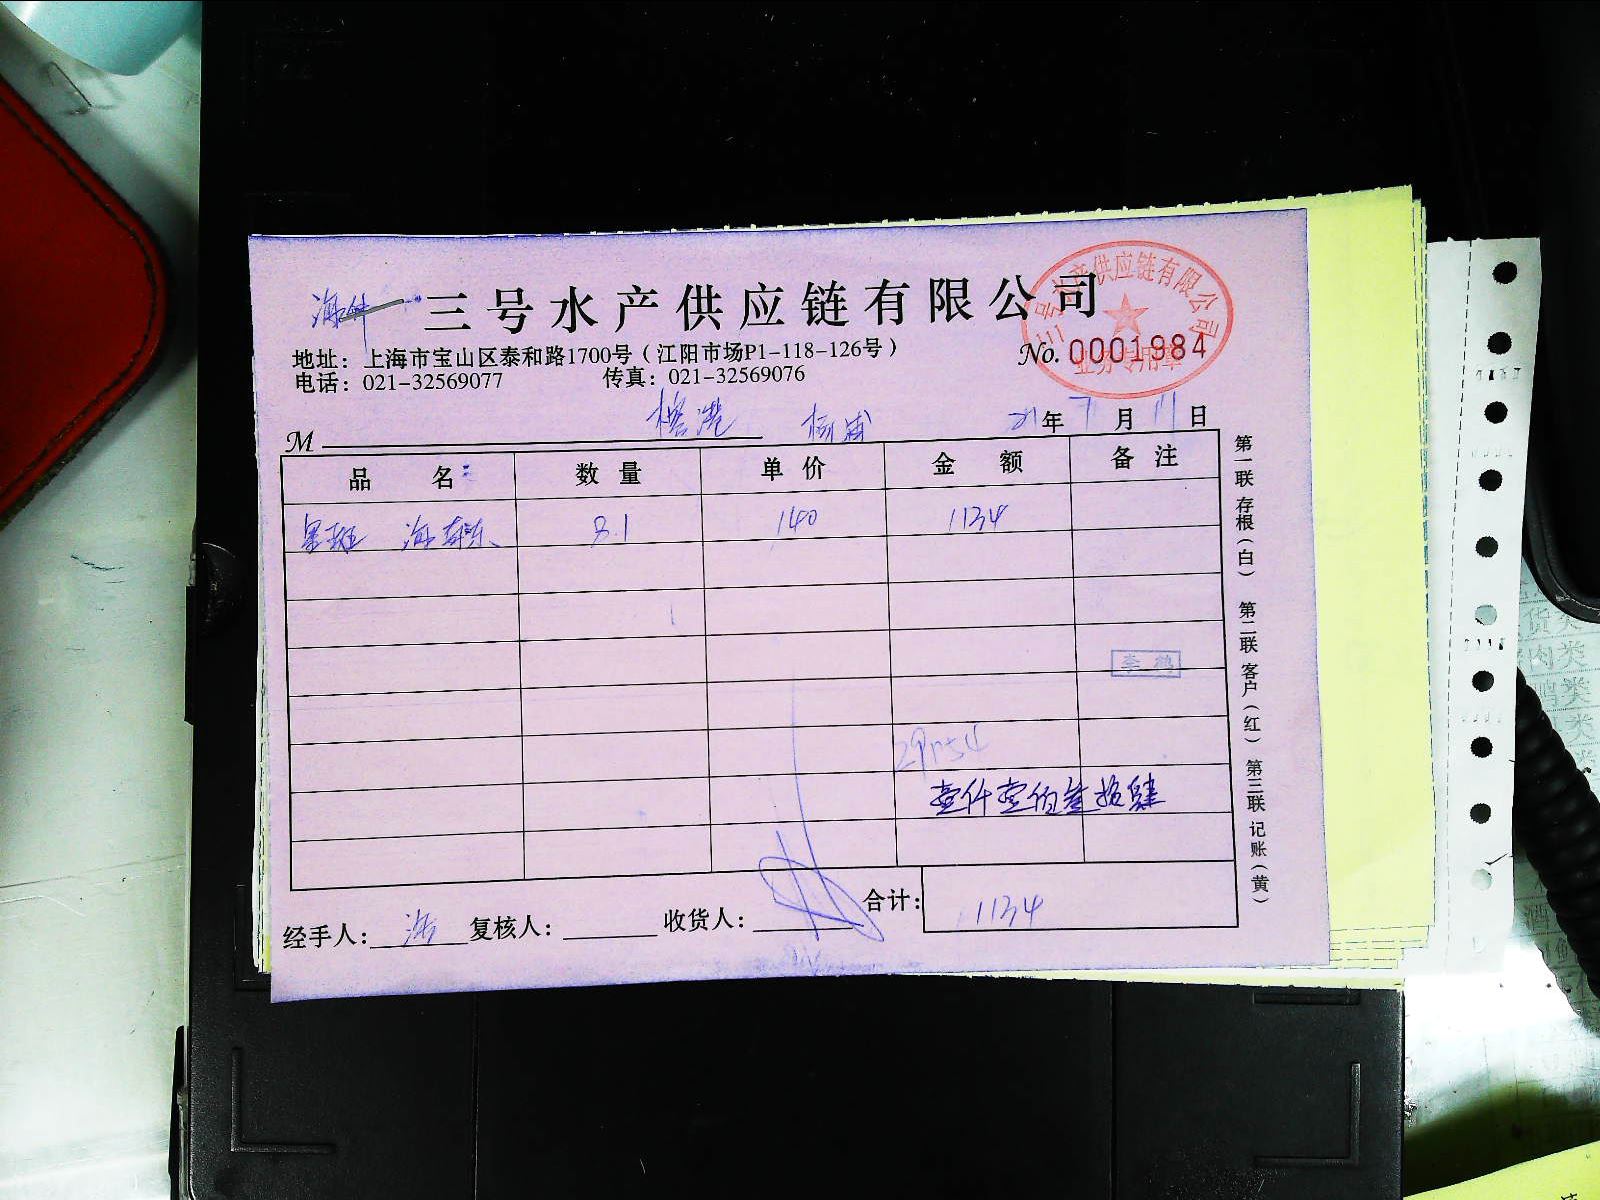 海鲜 三号水产供应链有限公司
三号水产供应链有限公司
业务专用章
地址：上海市宝山区泰和路1700号（江阳市场P1-118-126号）
No. 0001984
电话：021-32569077 传真：021-32569076
M 榕港 杨浦 21年7月11日
品 名 数 量 单 价 金 额 备 注
星斑 8.1 140 1134
李鹤
壹仟壹佰叁拾肆
经手人： 复核人： 收货人： 合计： 1134
第一联 存根（白） 第二联 客户（红） 第三联 记账（黄）
货类
肉类